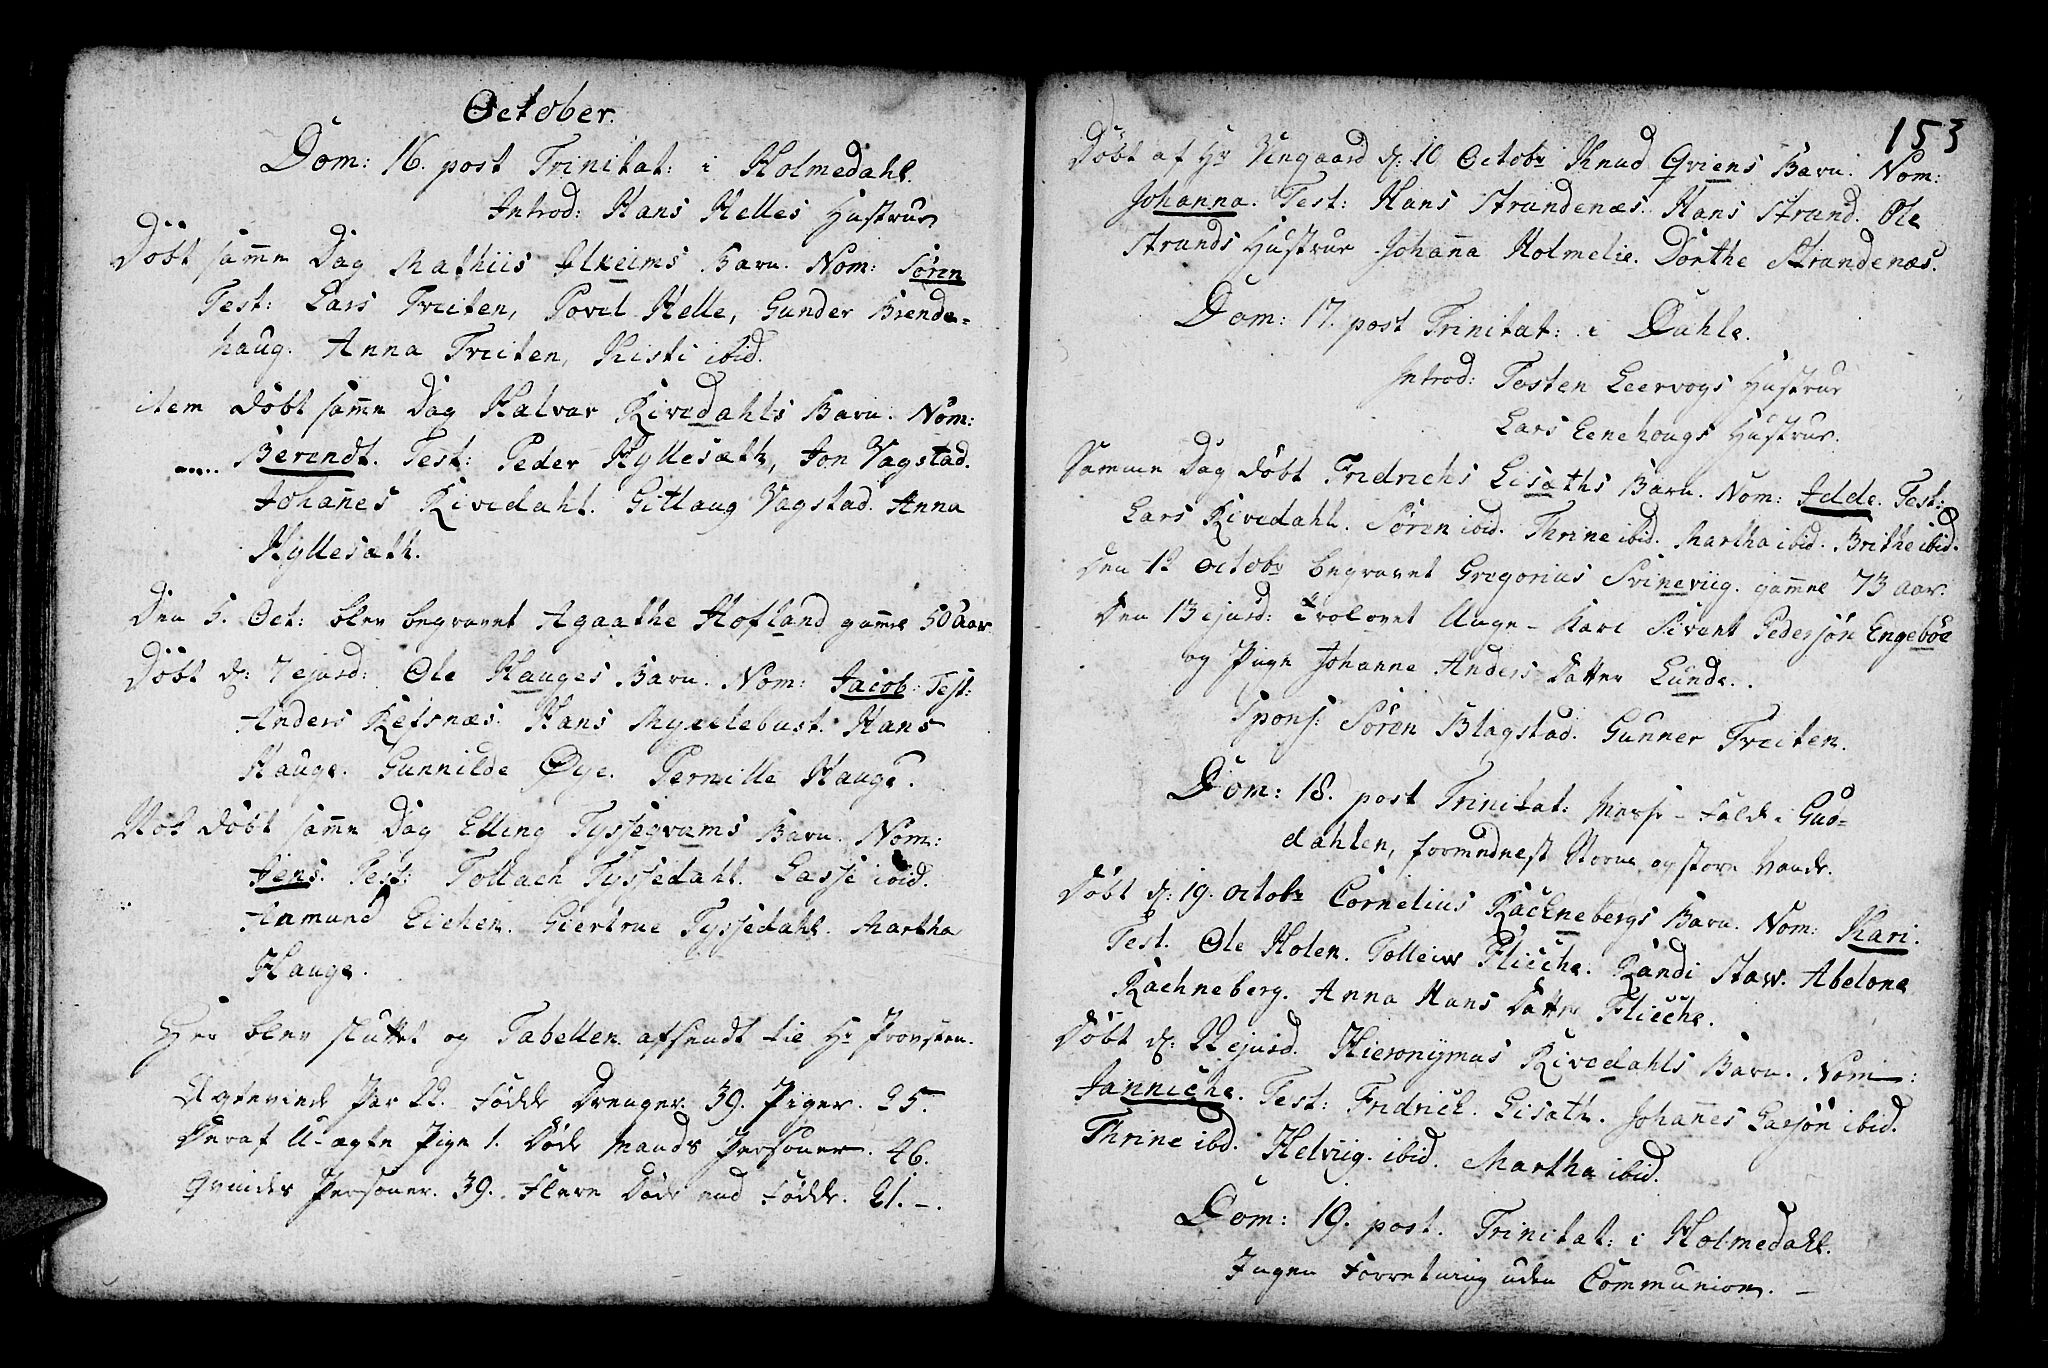 October.
Dom: 16. post Trinitat: i Holmedahl.
Introd: Hans Helles Hustrue
Døbt samme Dag Mathiis Alheims Barn. Nom: Søren
Test: Lars Treiten, Povel Helle, Gunder Brende-
haug. Anna Treiten, Kisti ibid.
item Døbt samme Dag Halvar Rivedahls Barn. Nom:
Berendt. Test: Peder Hyllesæth, Jon Vagstad.
Johañes Rivedahl. Gitlaug Vagstad. Anna
Hyllesæth.
Den 5. Oct: blev begravet Agaathe Hofland gamel 50 aar
Døbt d: 7 ejusd: Ole Hauges Barn. Nom: Jacob: Test:
Anders Refsnæs. Hans Myclebust. Hans
Hauge. Gunnilde Øye. Pernille Hauge.
Nok døbt samme Dag Elling Tyssequams Barn. Nom:
Jens. Test: Tollach Tyssedahl. Lasse ibid.
Anmund Eichen. Giertrue Tyssedahl. Martha
Hauge.
Her blev sluttet og Tabellen afsendt til Hr Provsten.
Ægteviede Par 22. Fødde Drenger. 39. Piger. 25.
Deraf U-ægte Pige 1. Døde Mands Personer. 46.
Qvindes Personer. 39. Flere Døde end Fødde. 21.-.
153
Døbt af Hr Vengaard d: 10 Octobr Knud Qviens Barn. Nom:
Johanna. Test: Hans Strandenæs. Hans Strand. Ole
Strands Hustrue Johaña Holmelie. Dorthe Strandenæs.
Dom: 17. post Trinitat: i Dahle.
Introd: Testen Leervogs Hustrue
Lars Eenehougs Hustrue.
Samme Dag døbt Fredrichs Lisæths Barn. Nom: Adde. Test:
Lars Rivedahl. Søren ibid. Thrine ibid. Martha ibid. Brithe ibid.
Den 12 Octobr begravet Gregorius Svineviig. gamel 73 aar.
Den 13 ejusd: Trolovet Unge-Karl Sivert Pedersøn Engebøe
og Pige Johanne Anders Datter Lunde.
Spons: Søren Blagstad. Gunner Treiten.
Dom: 18. post Trinitat: Messe-Fald i Gud-
dahlen, formedelst Storm og store Vande.
Døbt d: 19. Octobr Cornelius Rachnebergs Barn. Nom: Kari.
Test. Ole Holen. Tolleiv Flecche. Randi Staw. Abelone
Rachneberg. Anna Hans Datter Flecche.
Døbt d: 22 ejusd. Hieronÿmus Rivedahls Barn. Nom:
Janniche. Test: Fredrich Lisæth. Johañes Larsøn ibid.
Thrine ibd. Helviig. ibid. Martha ibid.
Dom: 19. post. Trinitat: i Holmedahl.
Ingen Forretning uden Communion. -